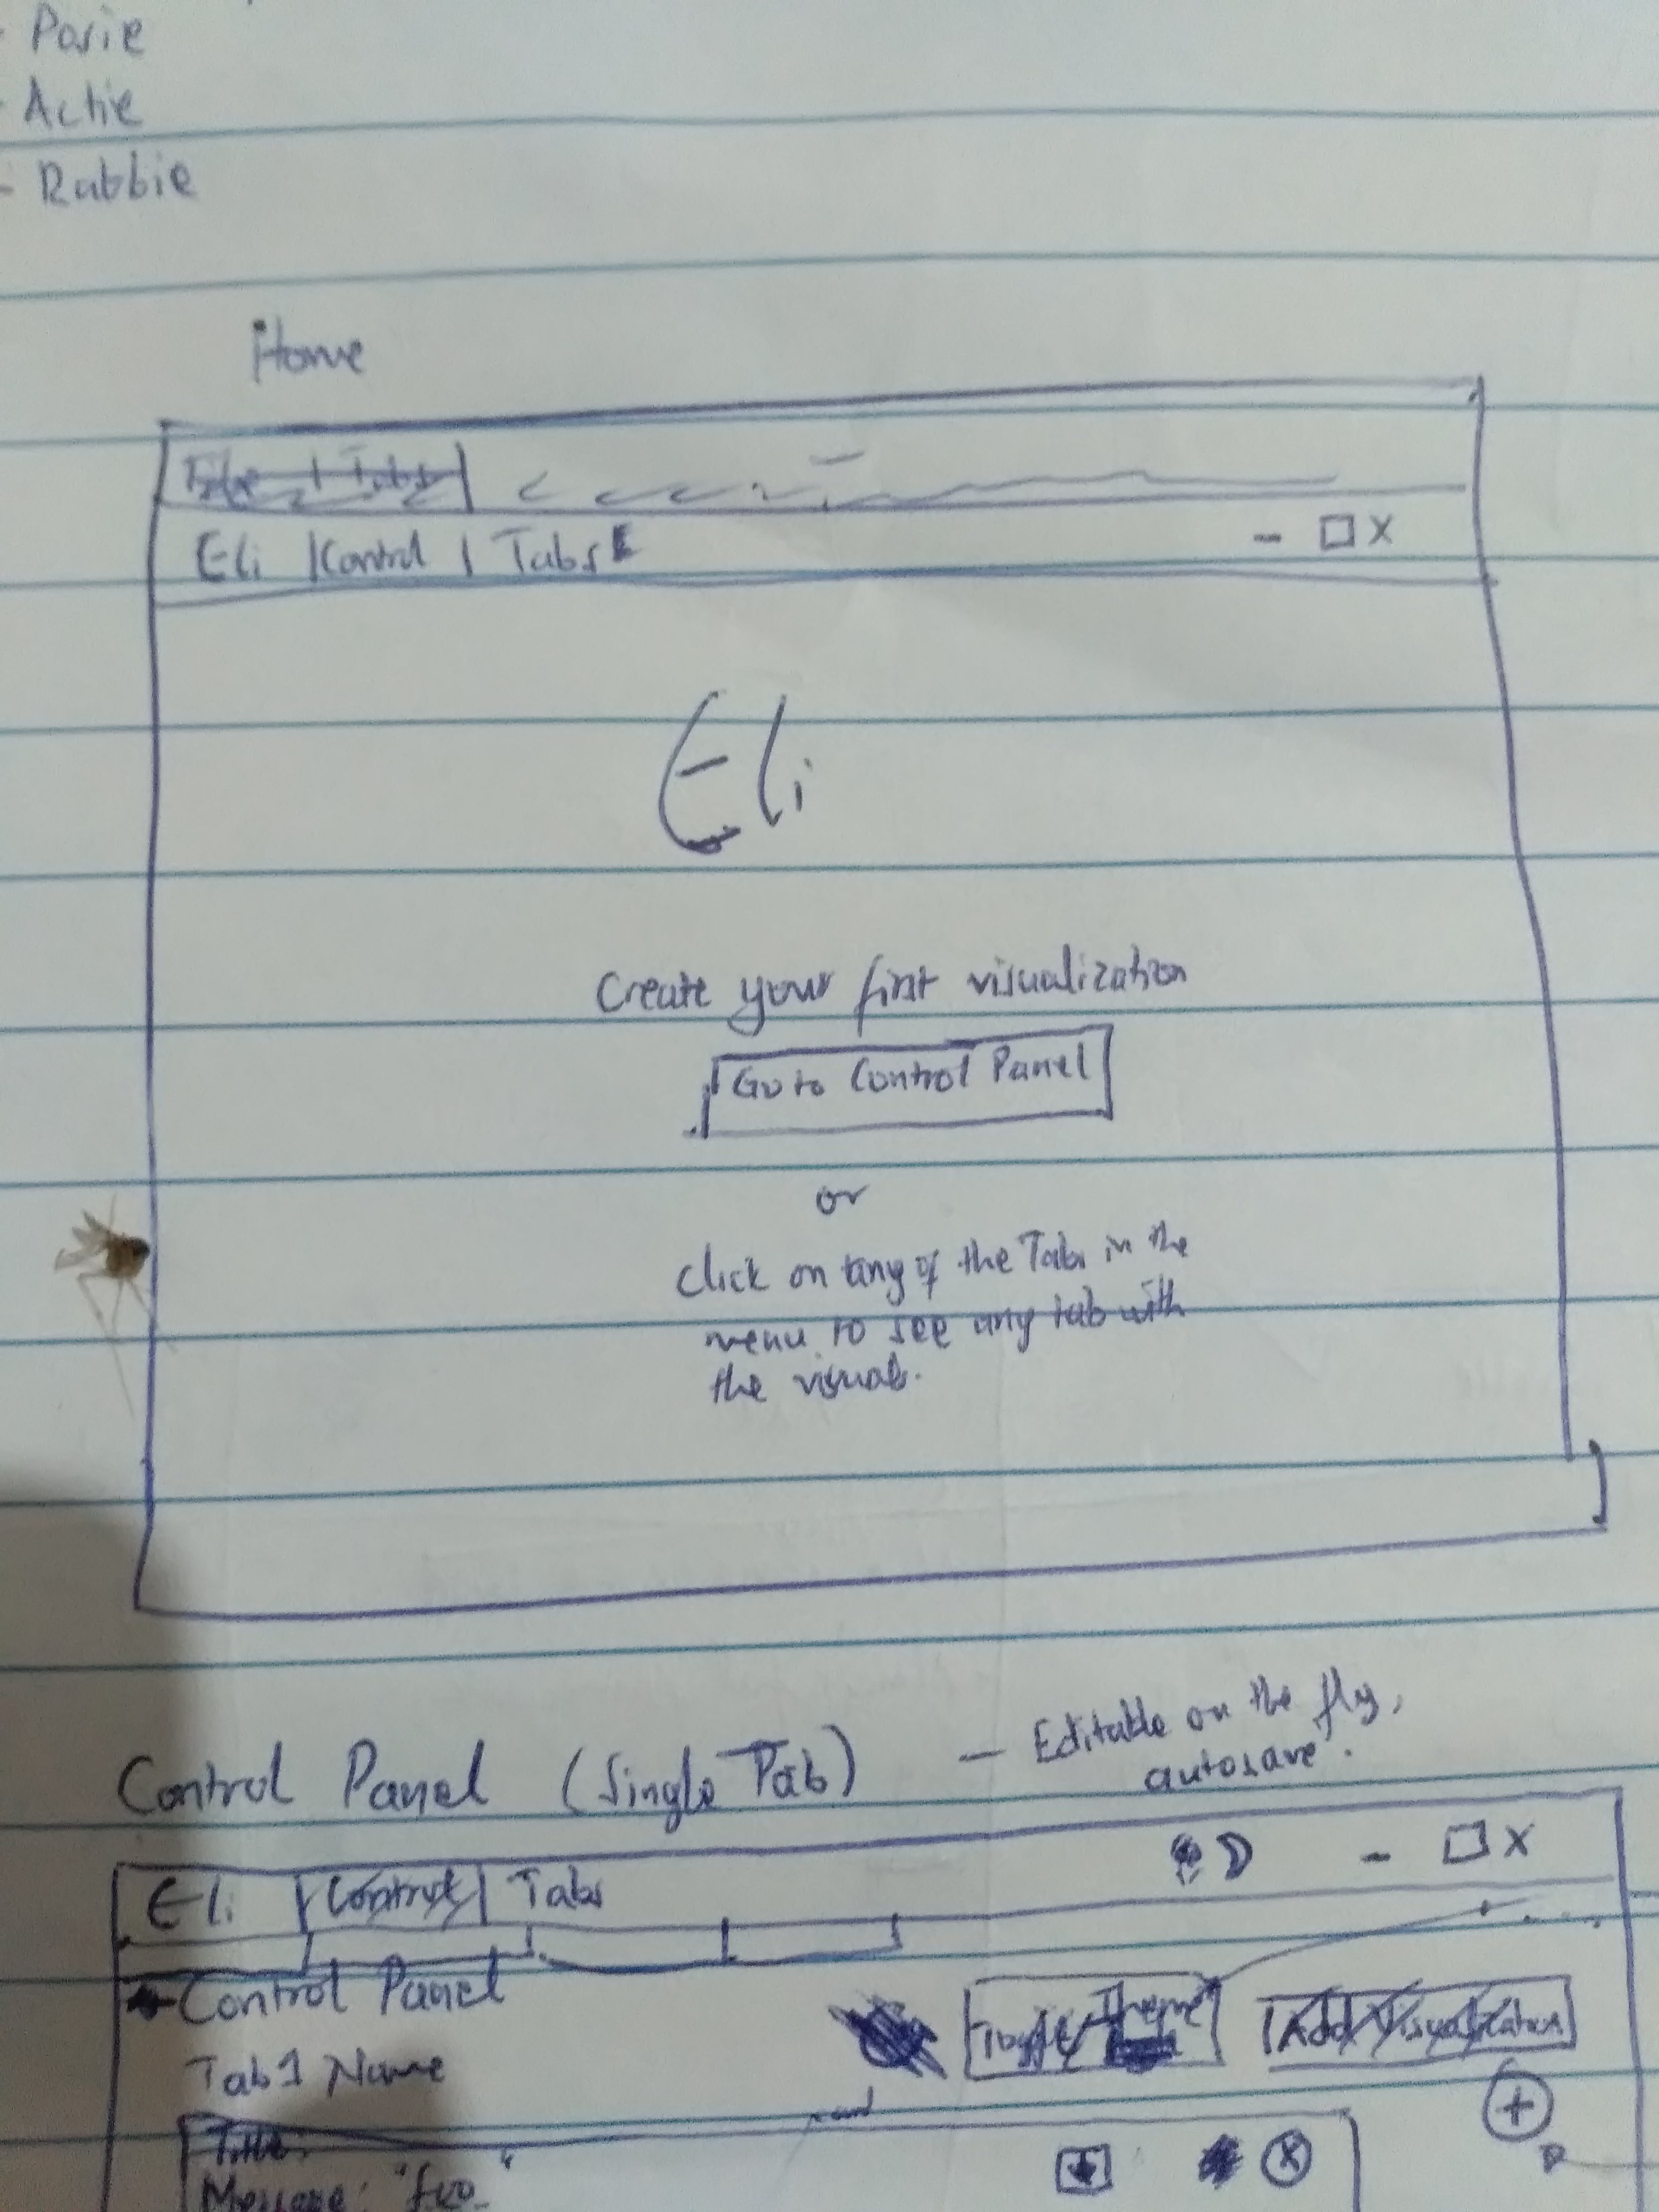 - Posie
- Actie
- Rabbie
Home
Eli | Control | Tabs - X
Eli
Create your first visualization
Go to Control Panel
or
Click on any of the Tabs in the
menu to see any tab with
the visuals.
Control Panel (Single Tab) - Editable on the fly,
autosave.
Eli | Control | Tabs - X
Control Panel
Toggle Theme Add Visualization
Tab1 Name
+
Title: X
Message: "